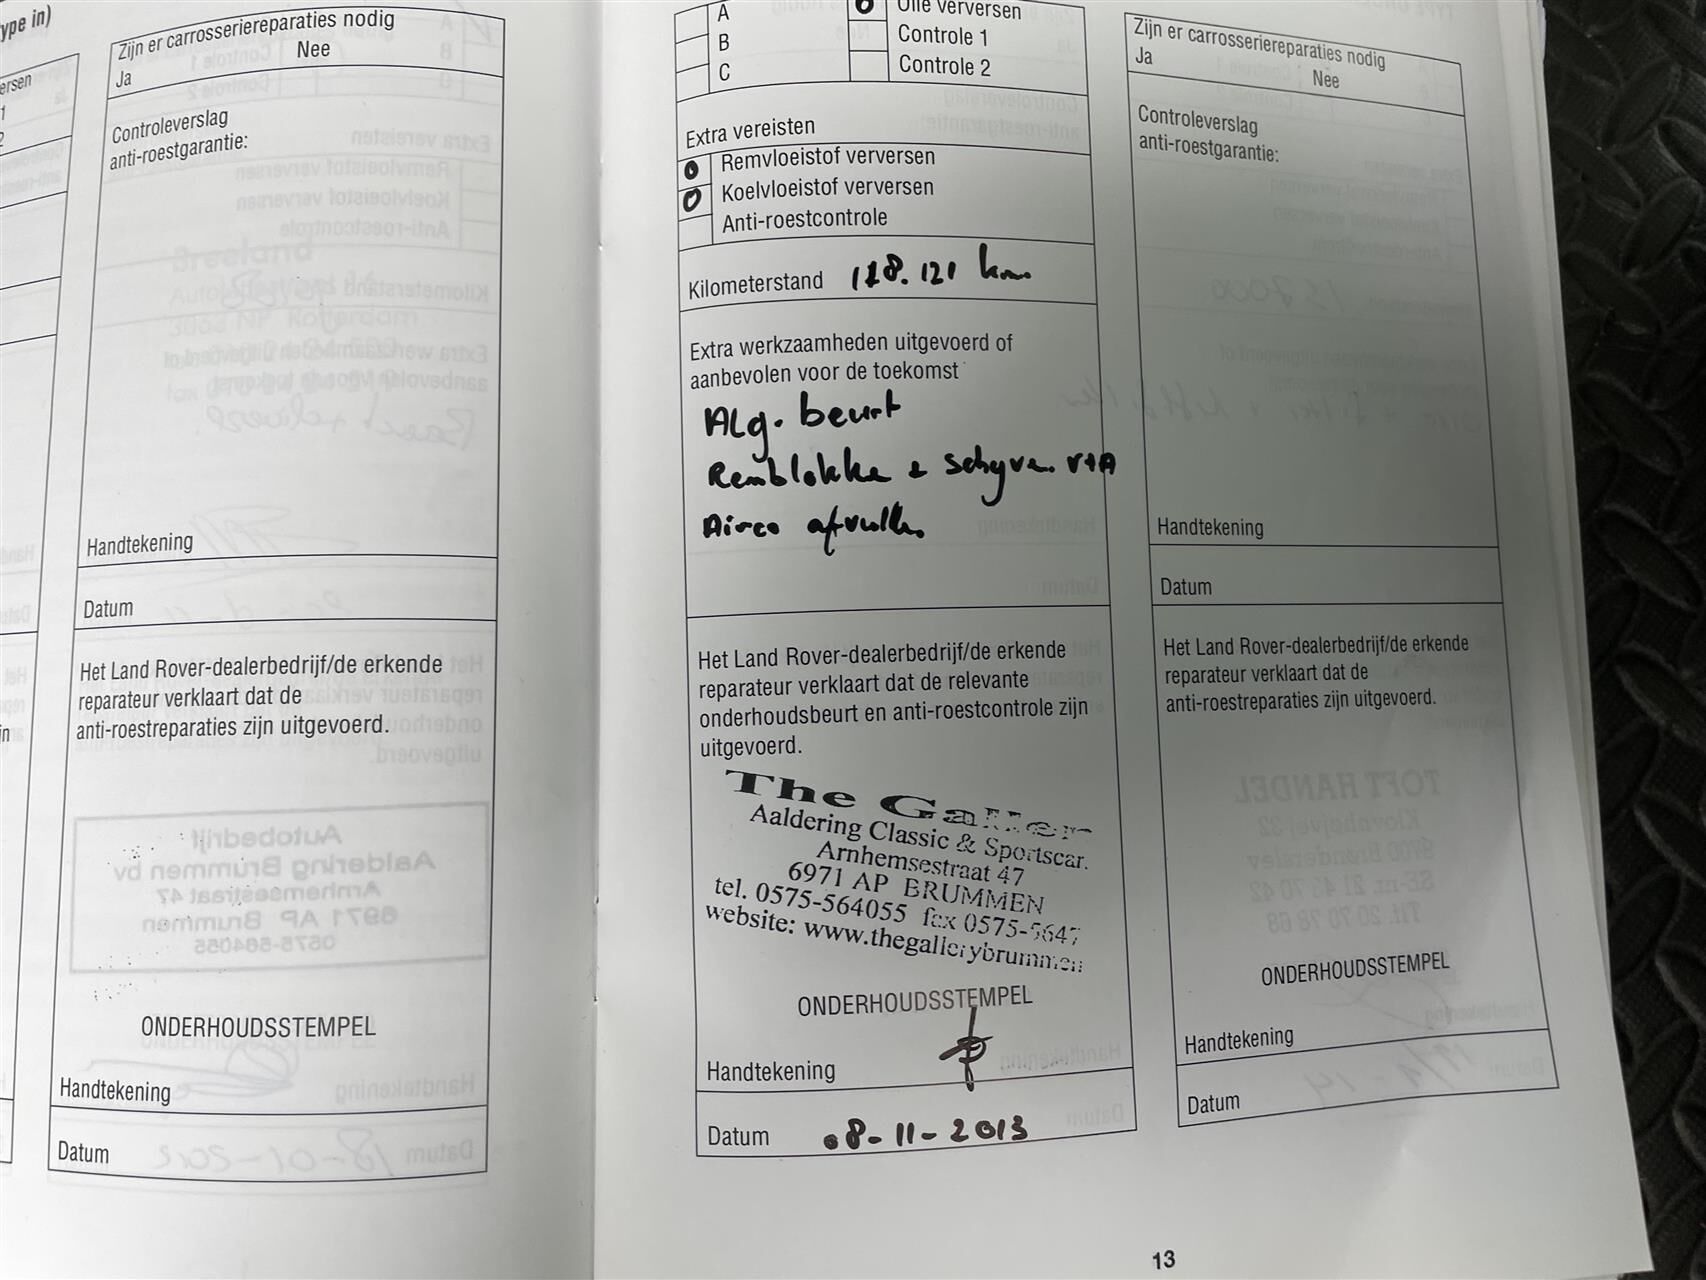 ype in)
ersen
1
2
in
Zijn er carrosseriereparaties nodig
Ja Nee
Controleverslag
anti-roestgarantie:
Handtekening
Datum
Het Land Rover-dealerbedrijf/de erkende
reparateur verklaart dat de
anti-roestreparaties zijn uitgevoerd.
ONDERHOUDSSTEMPEL
Handtekening
Datum
A Olie verversen
B Controle 1
C Controle 2
Extra vereisten
Remvloeistof verversen
Koelvloeistof verversen
Anti-roestcontrole
Kilometerstand 128.121 km
Extra werkzaamheden uitgevoerd of
aanbevolen voor de toekomst
Alg. beurt
Remblokke + schyven V+A
Airco afvullen
Het Land Rover-dealerbedrijf/de erkende
reparateur verklaart dat de relevante
onderhoudsbeurt en anti-roestcontrole zijn
uitgevoerd.
The Galler
Aaldering Classic & Sportscar.
Arnhemsestraat 47
6971 AP BRUMMEN
tel. 0575-564055 fax 0575-5647
website: www.thegallerybrummen
ONDERHOUDSSTEMPEL
Handtekening
Datum 08-11-2013
Zijn er carrosseriereparaties nodig
Ja Nee
Controleverslag
anti-roestgarantie:
Handtekening
Datum
Het Land Rover-dealerbedrijf/de erkende
reparateur verklaart dat de
anti-roestreparaties zijn uitgevoerd.
ONDERHOUDSSTEMPEL
Handtekening
Datum
13